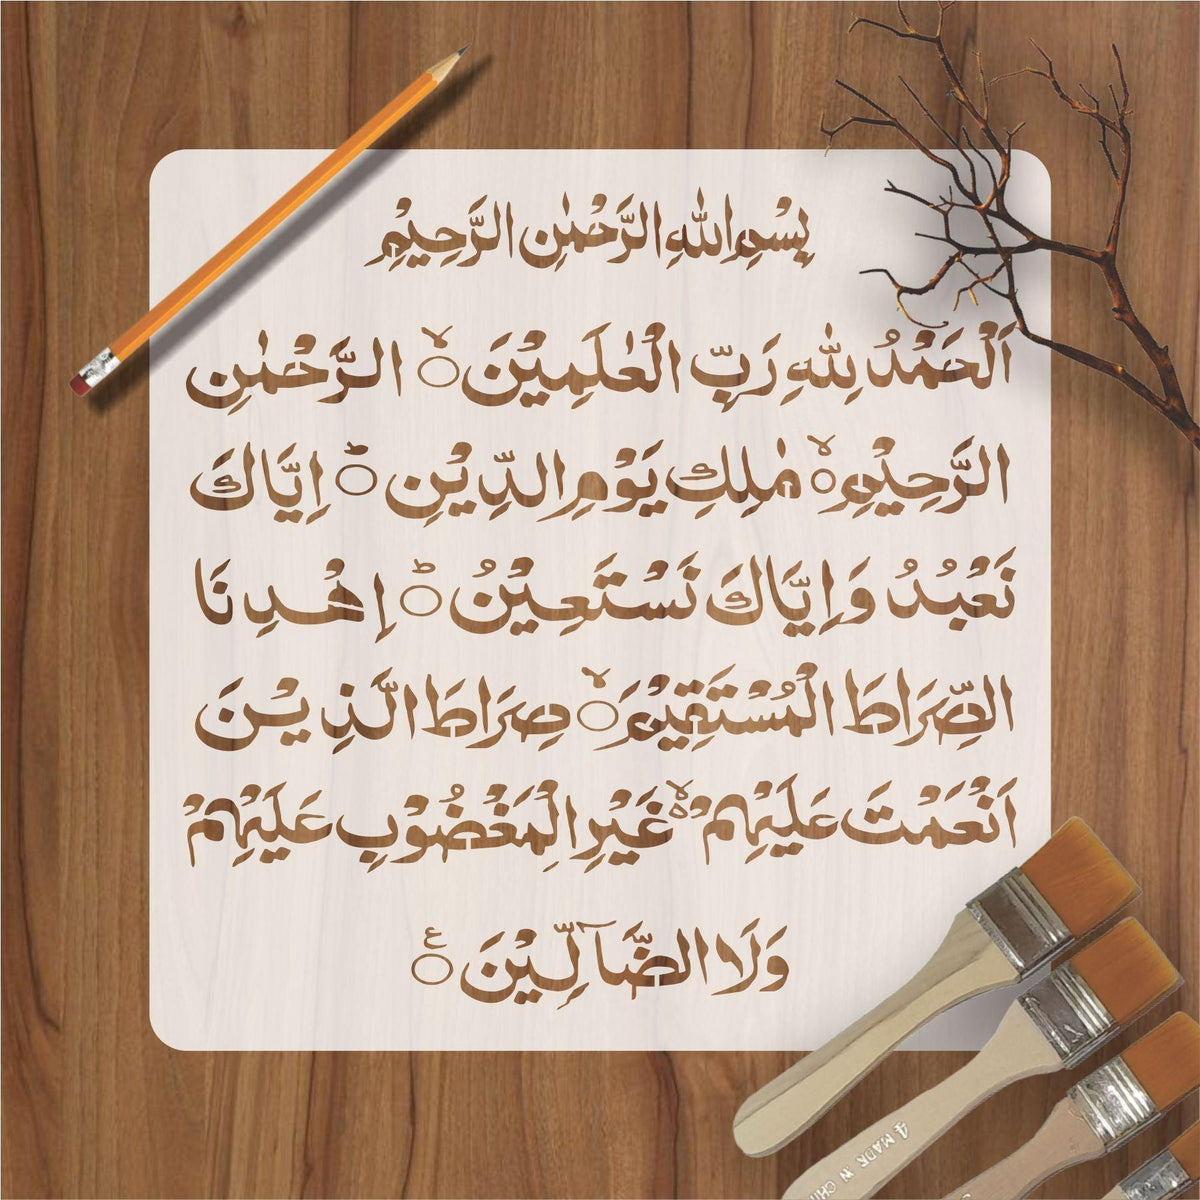 بِسْمِ اللّٰهِ الرَّحْمٰنِ الرَّحِيْمِ
اَلْحَمْدُ لِلّٰهِ رَبِّ الْعٰلَمِيْنَ ۙ○ الرَّحْمٰنِ
الرَّحِيْمِ ۙ○ مٰلِكِ يَوْمِ الدِّيْنِ ؕ○ اِيَّاكَ
نَعْبُدُ وَاِيَّاكَ نَسْتَعِيْنُ ؕ○ اِهْدِنَا
الصِّرَاطَ الْمُسْتَقِيْمَ ۙ○ صِرَاطَ الَّذِيْنَ
اَنْعَمْتَ عَلَيْهِمْ ۙ۬ غَيْرِ الْمَغْضُوْبِ عَلَيْهِمْ
وَلَا الضَّآلِّيْنَ ○ع
4 MADE IN CHI